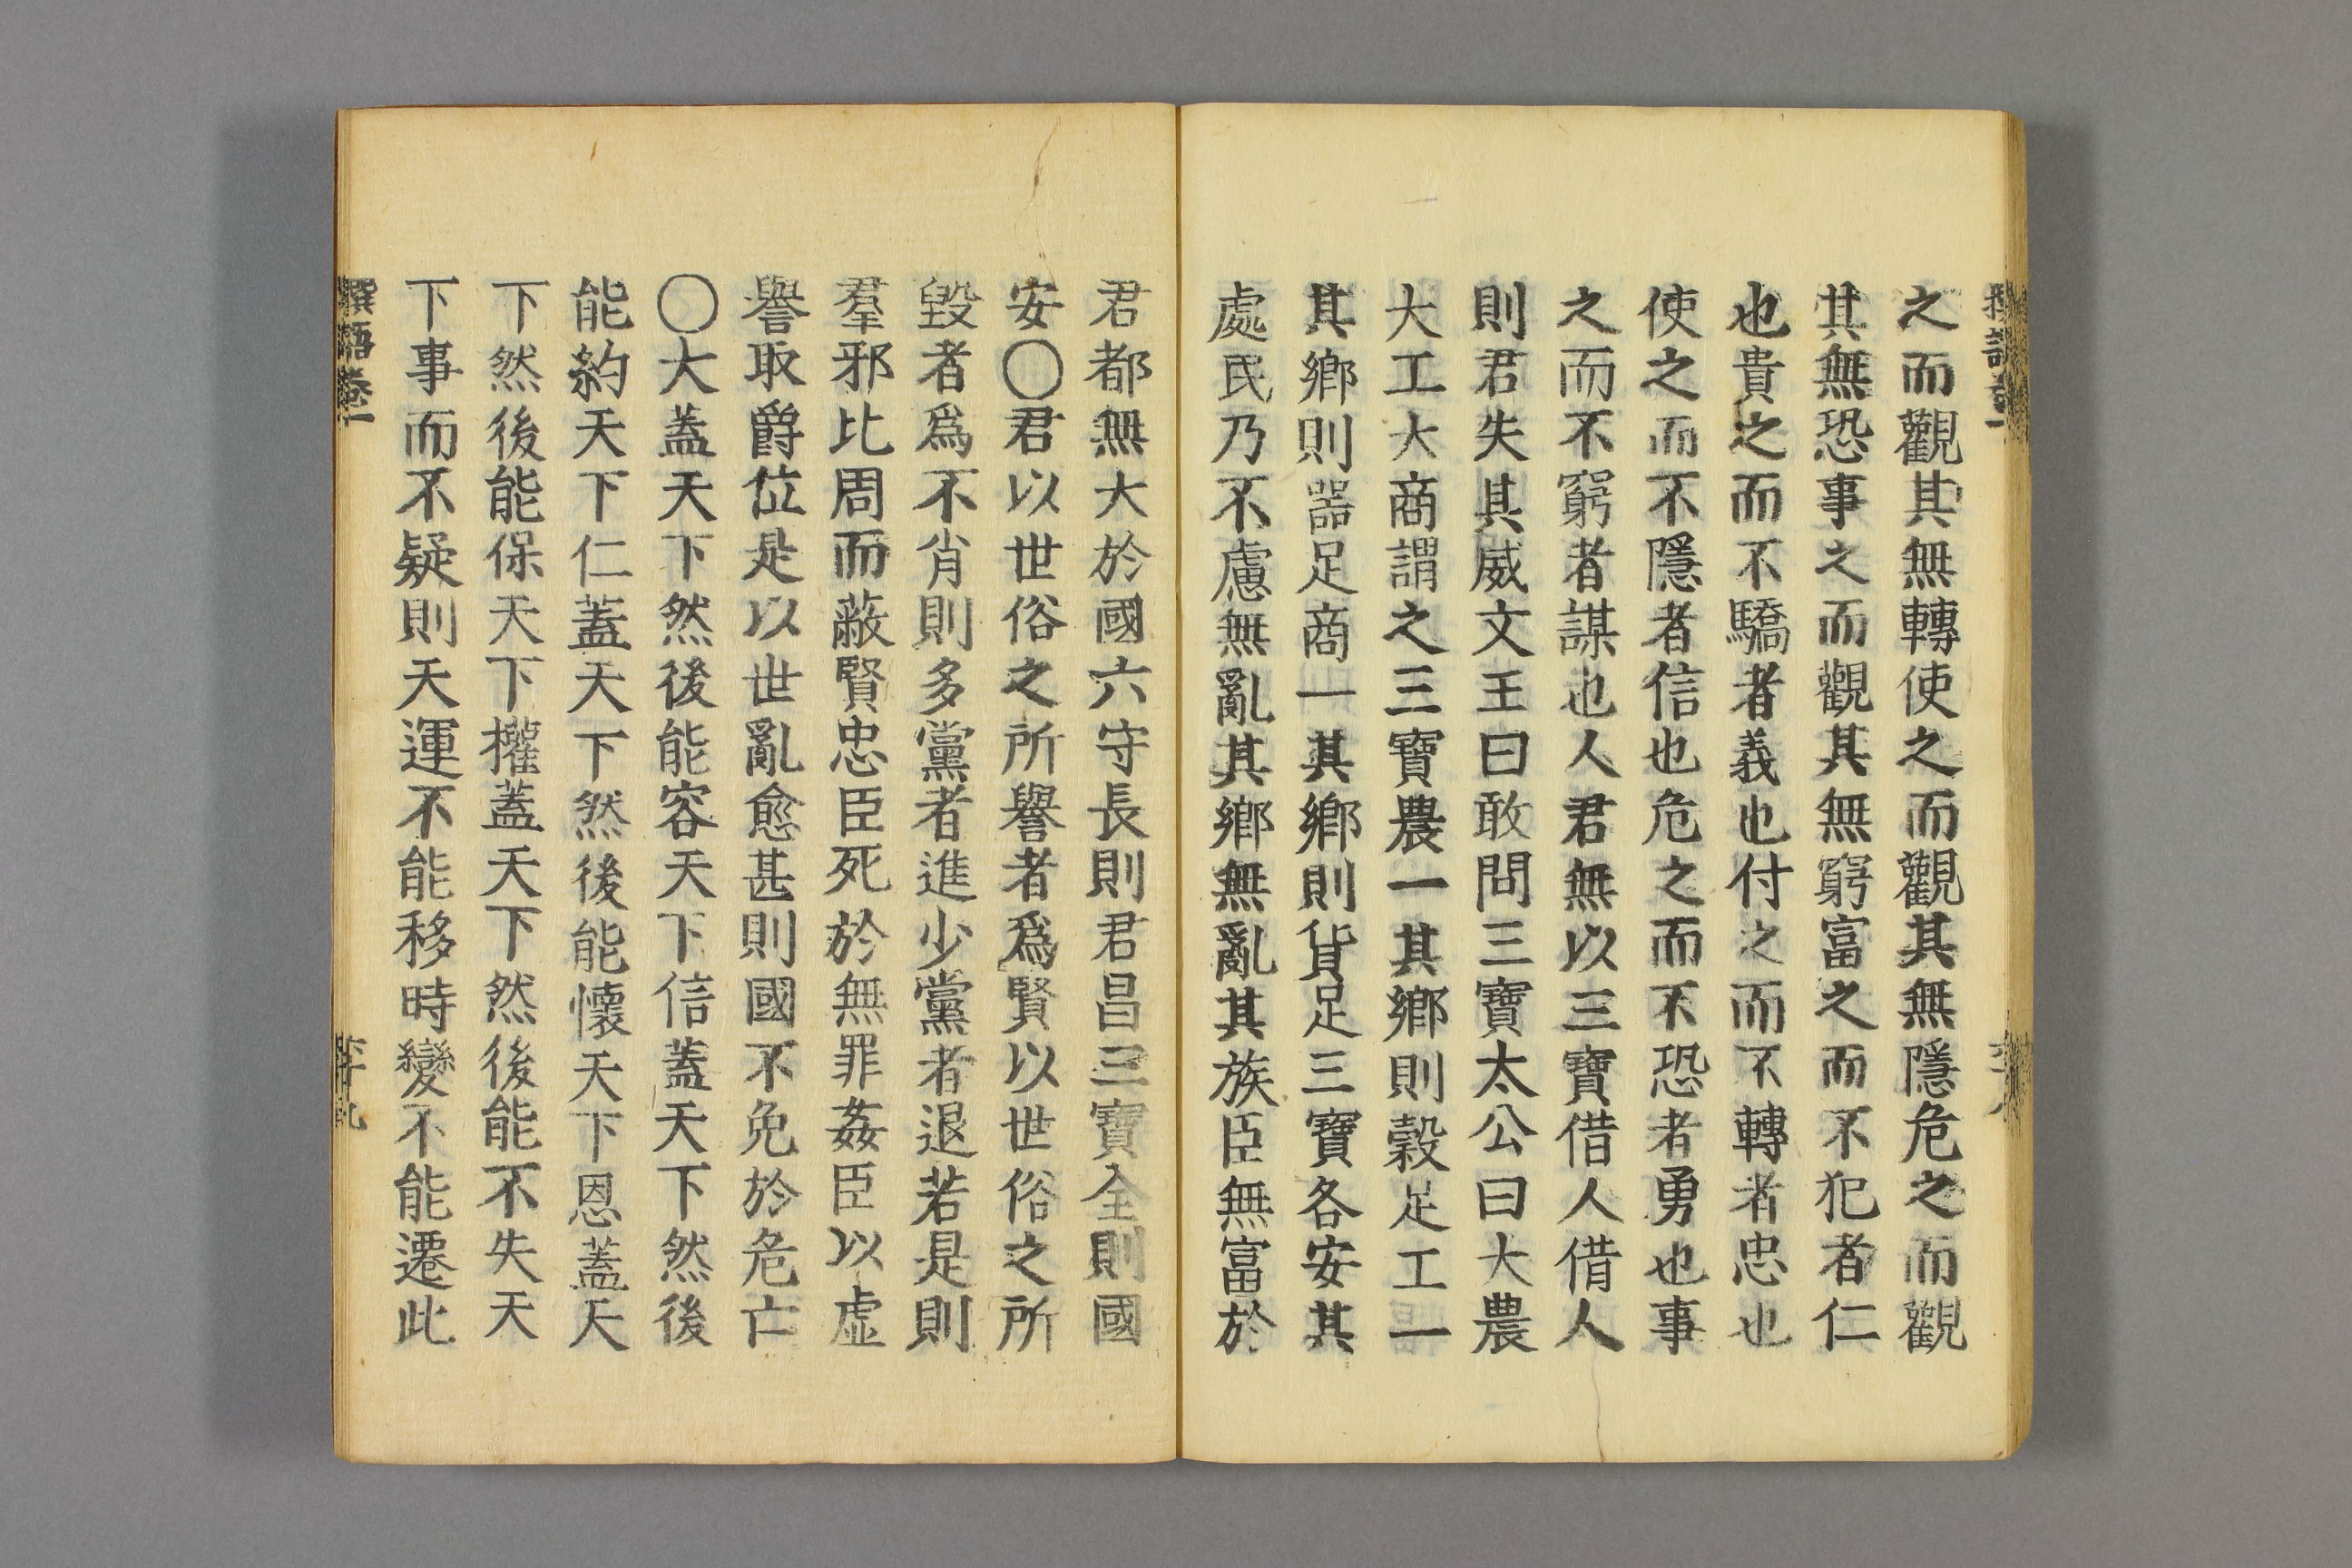 之而觀其無轉使之而觀其無隱危之而觀
其無恐事之而觀其無窮富之而不犯者仁
也貴之而不驕者義也付之而不轉者忠也
使之而不隱者信也危之而不恐者勇也事
之而不窮者謀也人君無以三寶借人借人
則君失其威文王曰敢問三寶太公曰大農
大工大商謂之三寶農一其鄉則穀足工一
其鄉則器足商一其鄉則貨足三寶各安其
處民乃不慮無亂其鄉無亂其族臣無富於
君都無大於國六守長則君昌三寶全則國
安〇君以世俗之所譽者爲賢以世俗之所
毀者爲不肖則多黨者進少黨者退若是則
羣邪比周而蔽賢忠臣死於無罪姦臣以虛
譽取爵位是以世亂愈甚則國不免於危亡
〇大蓋天下然後能容天下信蓋天下然後
能約天下仁蓋天下然後能懷天下恩蓋天
下然後能保天下權蓋天下然後能不失天
下事而不疑則天運不能移時變不能遷此